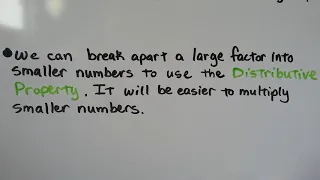 ●We can break apart a large factor into
smaller numbers to use the Distributive
Property. It will be easier to multiply
smaller numbers.